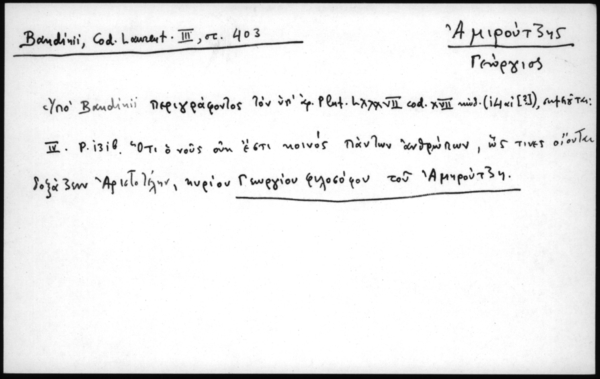 Bandinii, Cod. Laurent. III, στ. 403
Ἀμιρούτζης
Γεώργιος
Ὑπὸ Bandinii περιγράφοντος τὸν ὑπ' ἀρ. Plut. LXXXVII cod. XVII κώδ. (ιδ αἰ [?]), σημειοῦται:
IV. P. 131β. Ὅτι ὁ νοῦς οὐκ ἔστι κοινός πάντων ἀνθρώπων, ὥς τινες οἴονται
δοξάζειν Ἀριστοτέλην, κυρίου Γεωργίου φιλοσόφου τοῦ Ἀμηρούτζη.